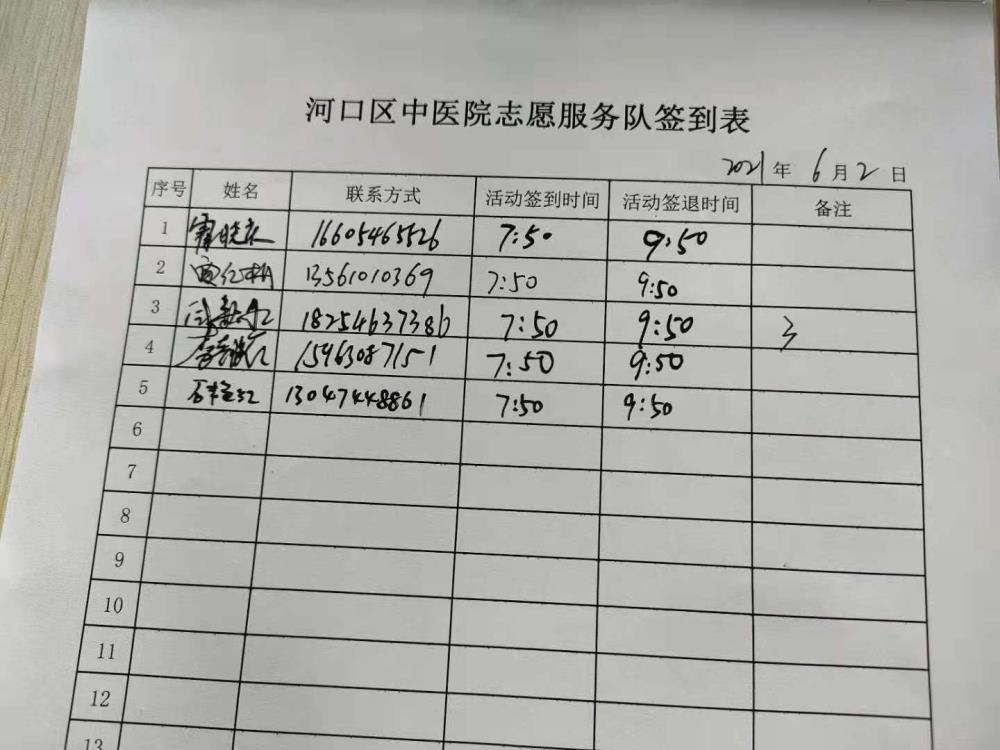 河口区中医院志愿服务队签到表
2021年6月2日
序号 姓名 联系方式 活动签到时间 活动签退时间 备注
1 16605465526 7:50 9:50
2 13561010369 7:50 9:50
3 18254637386 7:50 9:50
4 15963087151 7:50 9:50
5 13047448861 7:50 9:50
6
7
8
9
10
11
12
13